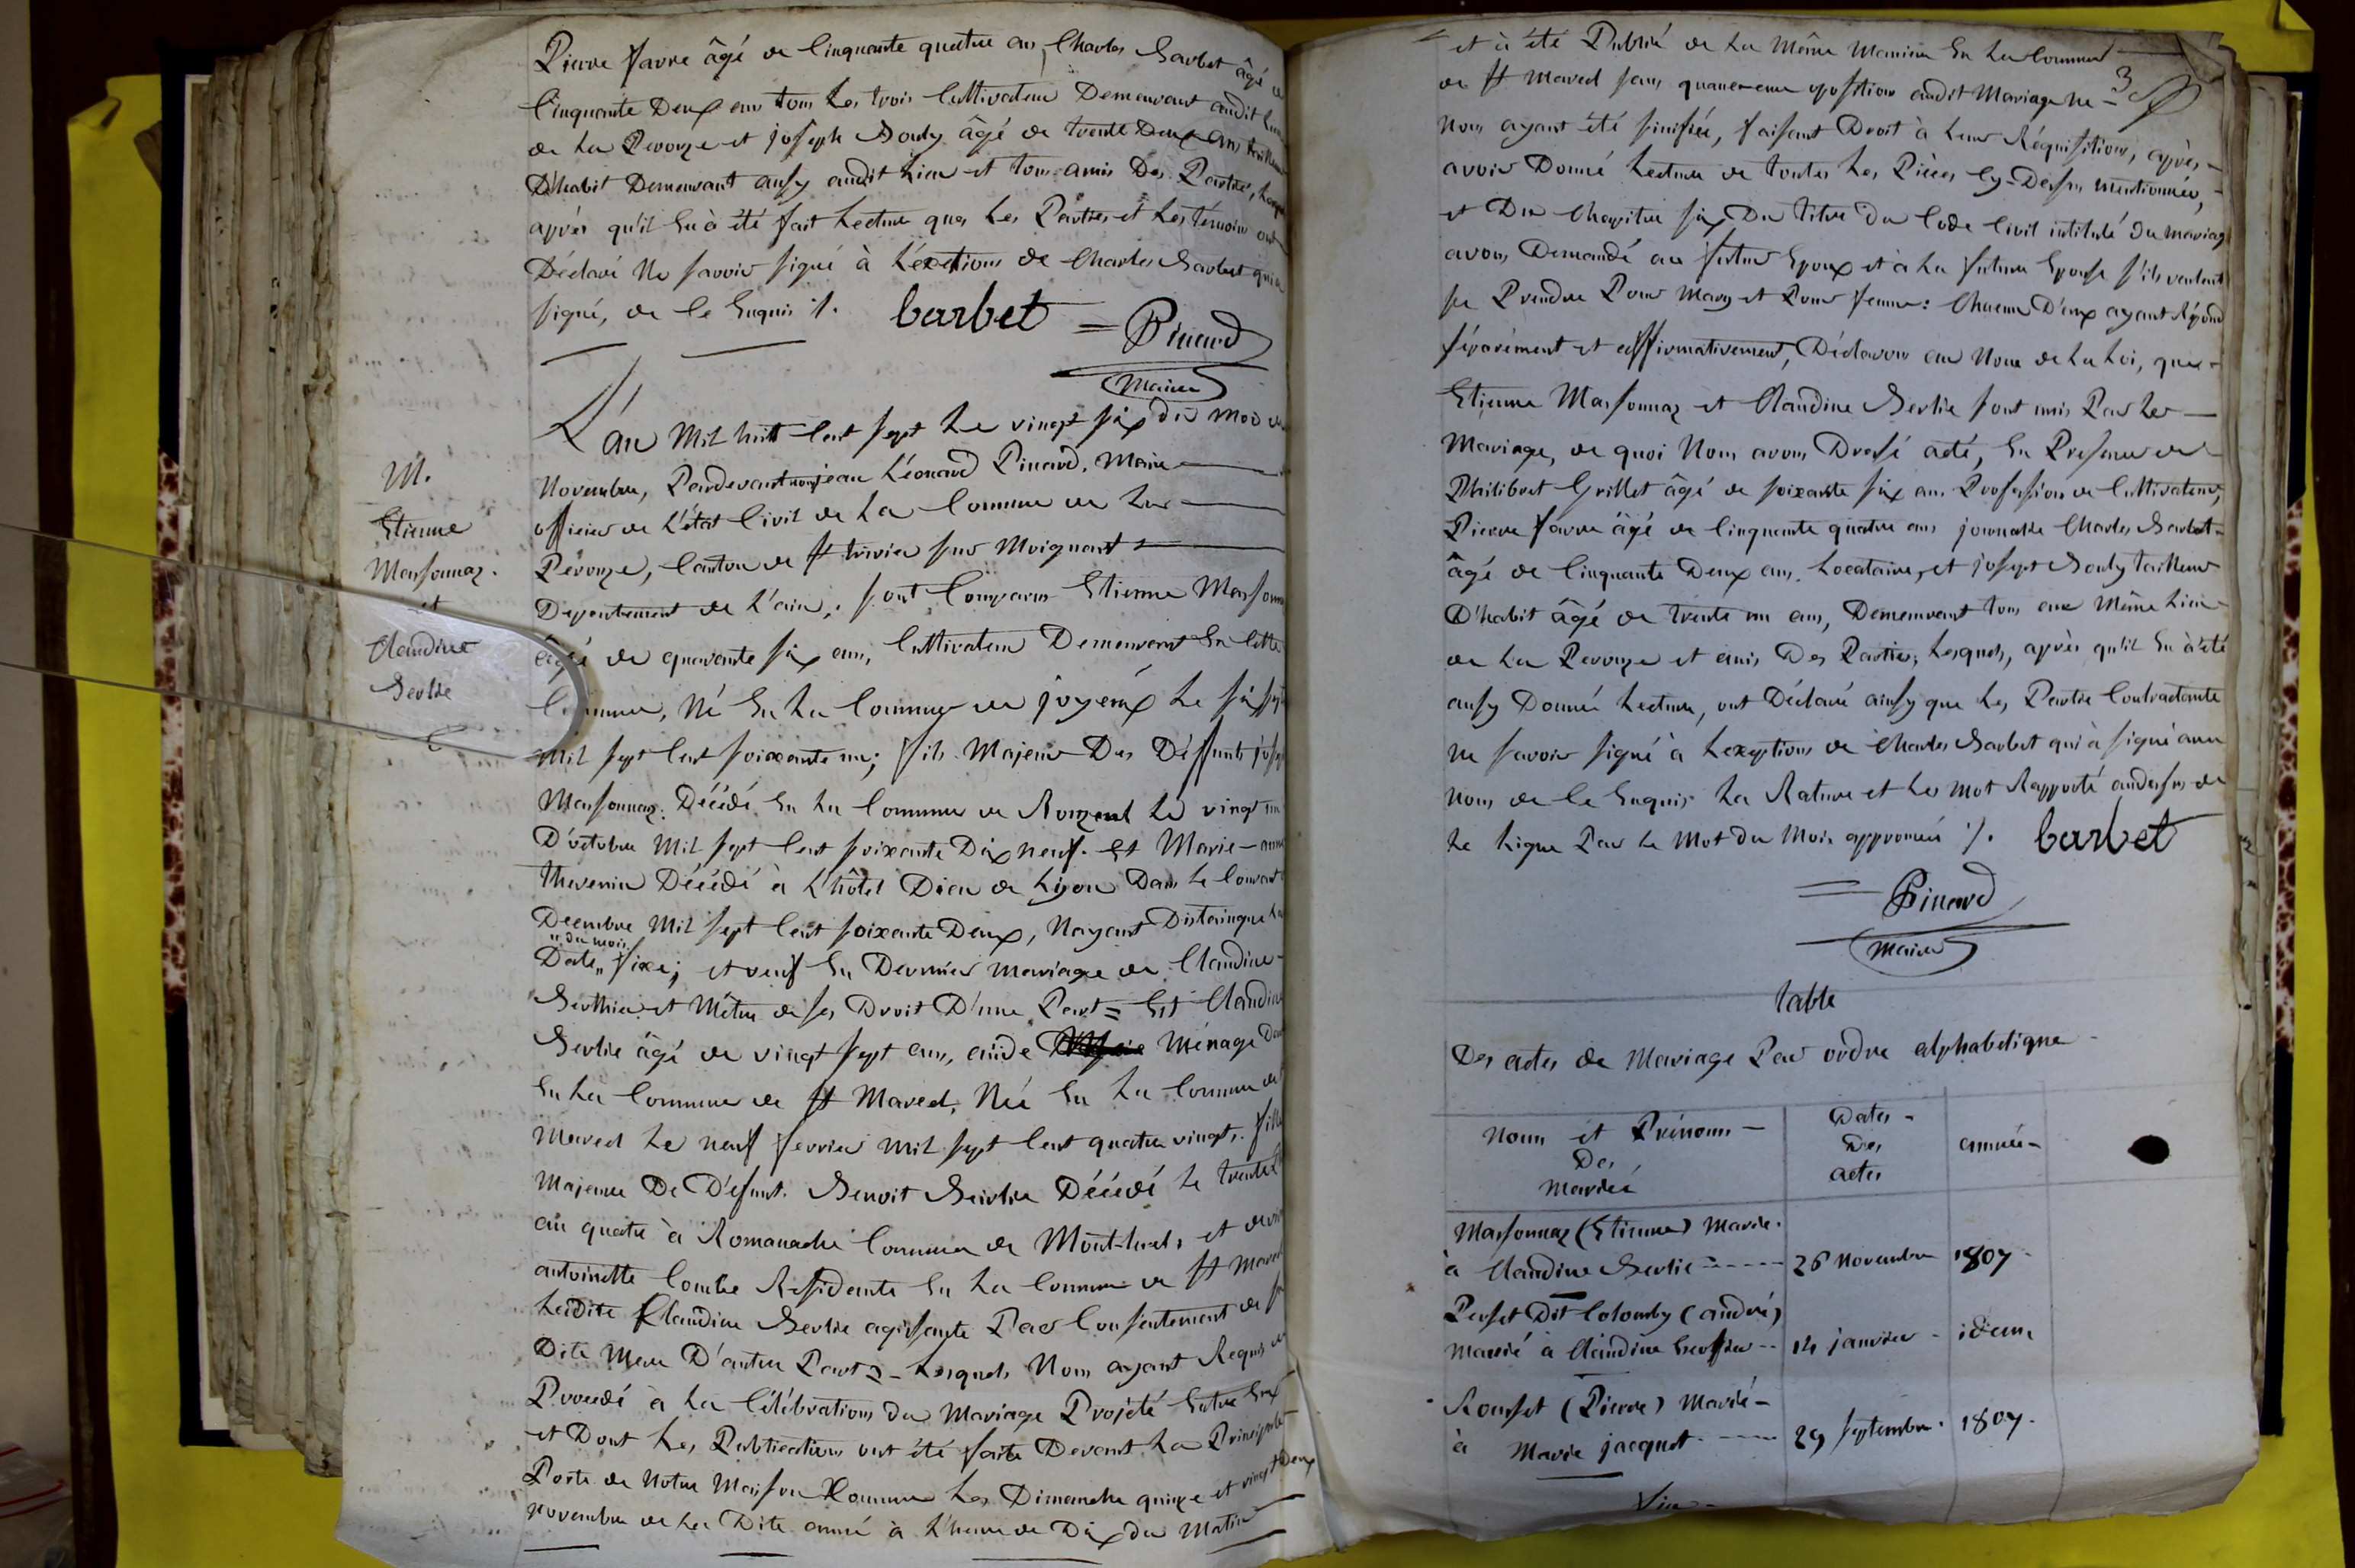 Pierre favre âgé de Cinquante quatre ans, Charles Barbet âgé de
Cinquante Deux ans tous Les trois Cultivateur Demeurant audit Lieu
de La Perouze et joseph Bouly âgé de trente Deux ans tailleur
D'habit Demeurant ausy audit Lieu et tous amis Des Parties,
après qu'il En à été fait Lecture que Les Parties et Les témoins ont
Déclaré Ne savoir signé à L'exections de Charles Barbet qui a
signé, de Ce Enquis ⁒. barbet = Pinard
Maire
L'an Mil huit Cent sept Le vingt six du Mois de
Novembre, Pardevant nous jean Léonard Pinard, Maire
officier de L'état Civil de La Commune de La
Pérouze, Canton de st trivier sur Moignant
Departement de L'ain; sont Comparus Etienne Massonnaz
âgé de quarante six ans, Cultivateur Demeurant En Cette
Commune, Né En La Commune de joyeux Le six
Mil sept Cent soixante un; fils Majeur Des Deffunts joseph
Massonnaz. Décédé En La Commune de Ronzuel Le vingt un
D'octobre Mil sept Cent soixante Dix neuf. Et Marie-anne
thevenin Décédé à L'hôtel Dieu de Lyon Dans Le Courant
Decembre Mil sept Cent soixante Deux, Nayant Distaingue La
" du mois.
Date " fixe; et veuf En Dernier Mariage de Claudine
Berthier et Métre de ses Droit D'une Part = Et Claudine
Berlie âgé de vingt sept ans, aide Ménage
En La Commune de st Marcel, Née En La Commune de st
Marcel Le neuf fevrier Mil sept Cent quatre vingt. fille
Majeure De Défunt. Benoit Berlie Décédé Le trente
an quatre à Romanache Commune de Mont-luel, et de
antoinette Combe Residante En La Commune de st Marcel
Ladite Claudine Berlie agissante Par Consentement de sa
Dite Mere D'autre Part = Lesquels Nous ayant Requis de
Procedé à La Célébrations du Mariage Projeté Entre Eux
et Dont Les Publications ont été faite Devant La Principale
Porte de Notre Maison Commune Les Dimanche quinze et vingt Deux
novembre de La Dite année à L'heure de Dix du Matin
M.
Etienne
Massonnaz.
et
Claudine
Berlie
et à été Publié de La Même Maniere En La Commune
de st Marcel sans quaucune oposition audit Mariage ne
3
Nous ayant été sinifiée, faisant Droit à Leur Réquisitions, après
avoir Donné Lecture de toutes Les Pièces Cy-Dessus mentionnées,
et Du Chapitre six Du titre du Code Civil intitulé du mariage
avons Demandé au futur Epoux et à La future Epouse s'ils veulent
se Prendre Pour Mary et Pour femme: Chacun D'eux ayant Répond
séparément et affirmativement, Déclarons au Nom de La Loi, que
Etienne Massonnaz et Claudine Berlie sont unis Par Le
Mariage, de quoi Nous avons Dressé acté, En Presence de
Philibert Grillet âgé de soixante six ans Profession de Cultivateur,
Pierre favre âgé de Cinquante quatre ans journalie Charles Barbet
âgé de Cinquante Deux ans. Locataire, et josept Bouly tailleur
D'habit âgé de trente un ans, Demeurant tous au Même Lieu
de La Perouze et amis Des Parties; Lesquels, après qu'il En à été
ausy Donné Lecture, ont Déclaré ainsy que Les Partie Contractante
ne savoir signé à L'exeptions de Charles Barbet qui à signé avec
nous de Ce Enquis. La Rature et Le Mot Rapporté audessus de
La Ligne Par Le Mot du Mois approuvés ⁒. barbet
= Pinard
Maire
table
Des actes de Mariage Par ordre alphabetique
Noms et Prénoms
Des
Mariés
Dates
Des
actes
année
Massonnaz (Etienne) Marié.
à Claudine Berlie 26 Novembre 1807
Perset Dit Colomby (andré)
Marié à Claudine 14 janvier idem
Rousset (Pierre) Marié
à Marie jacquet 29 septembre 1807.